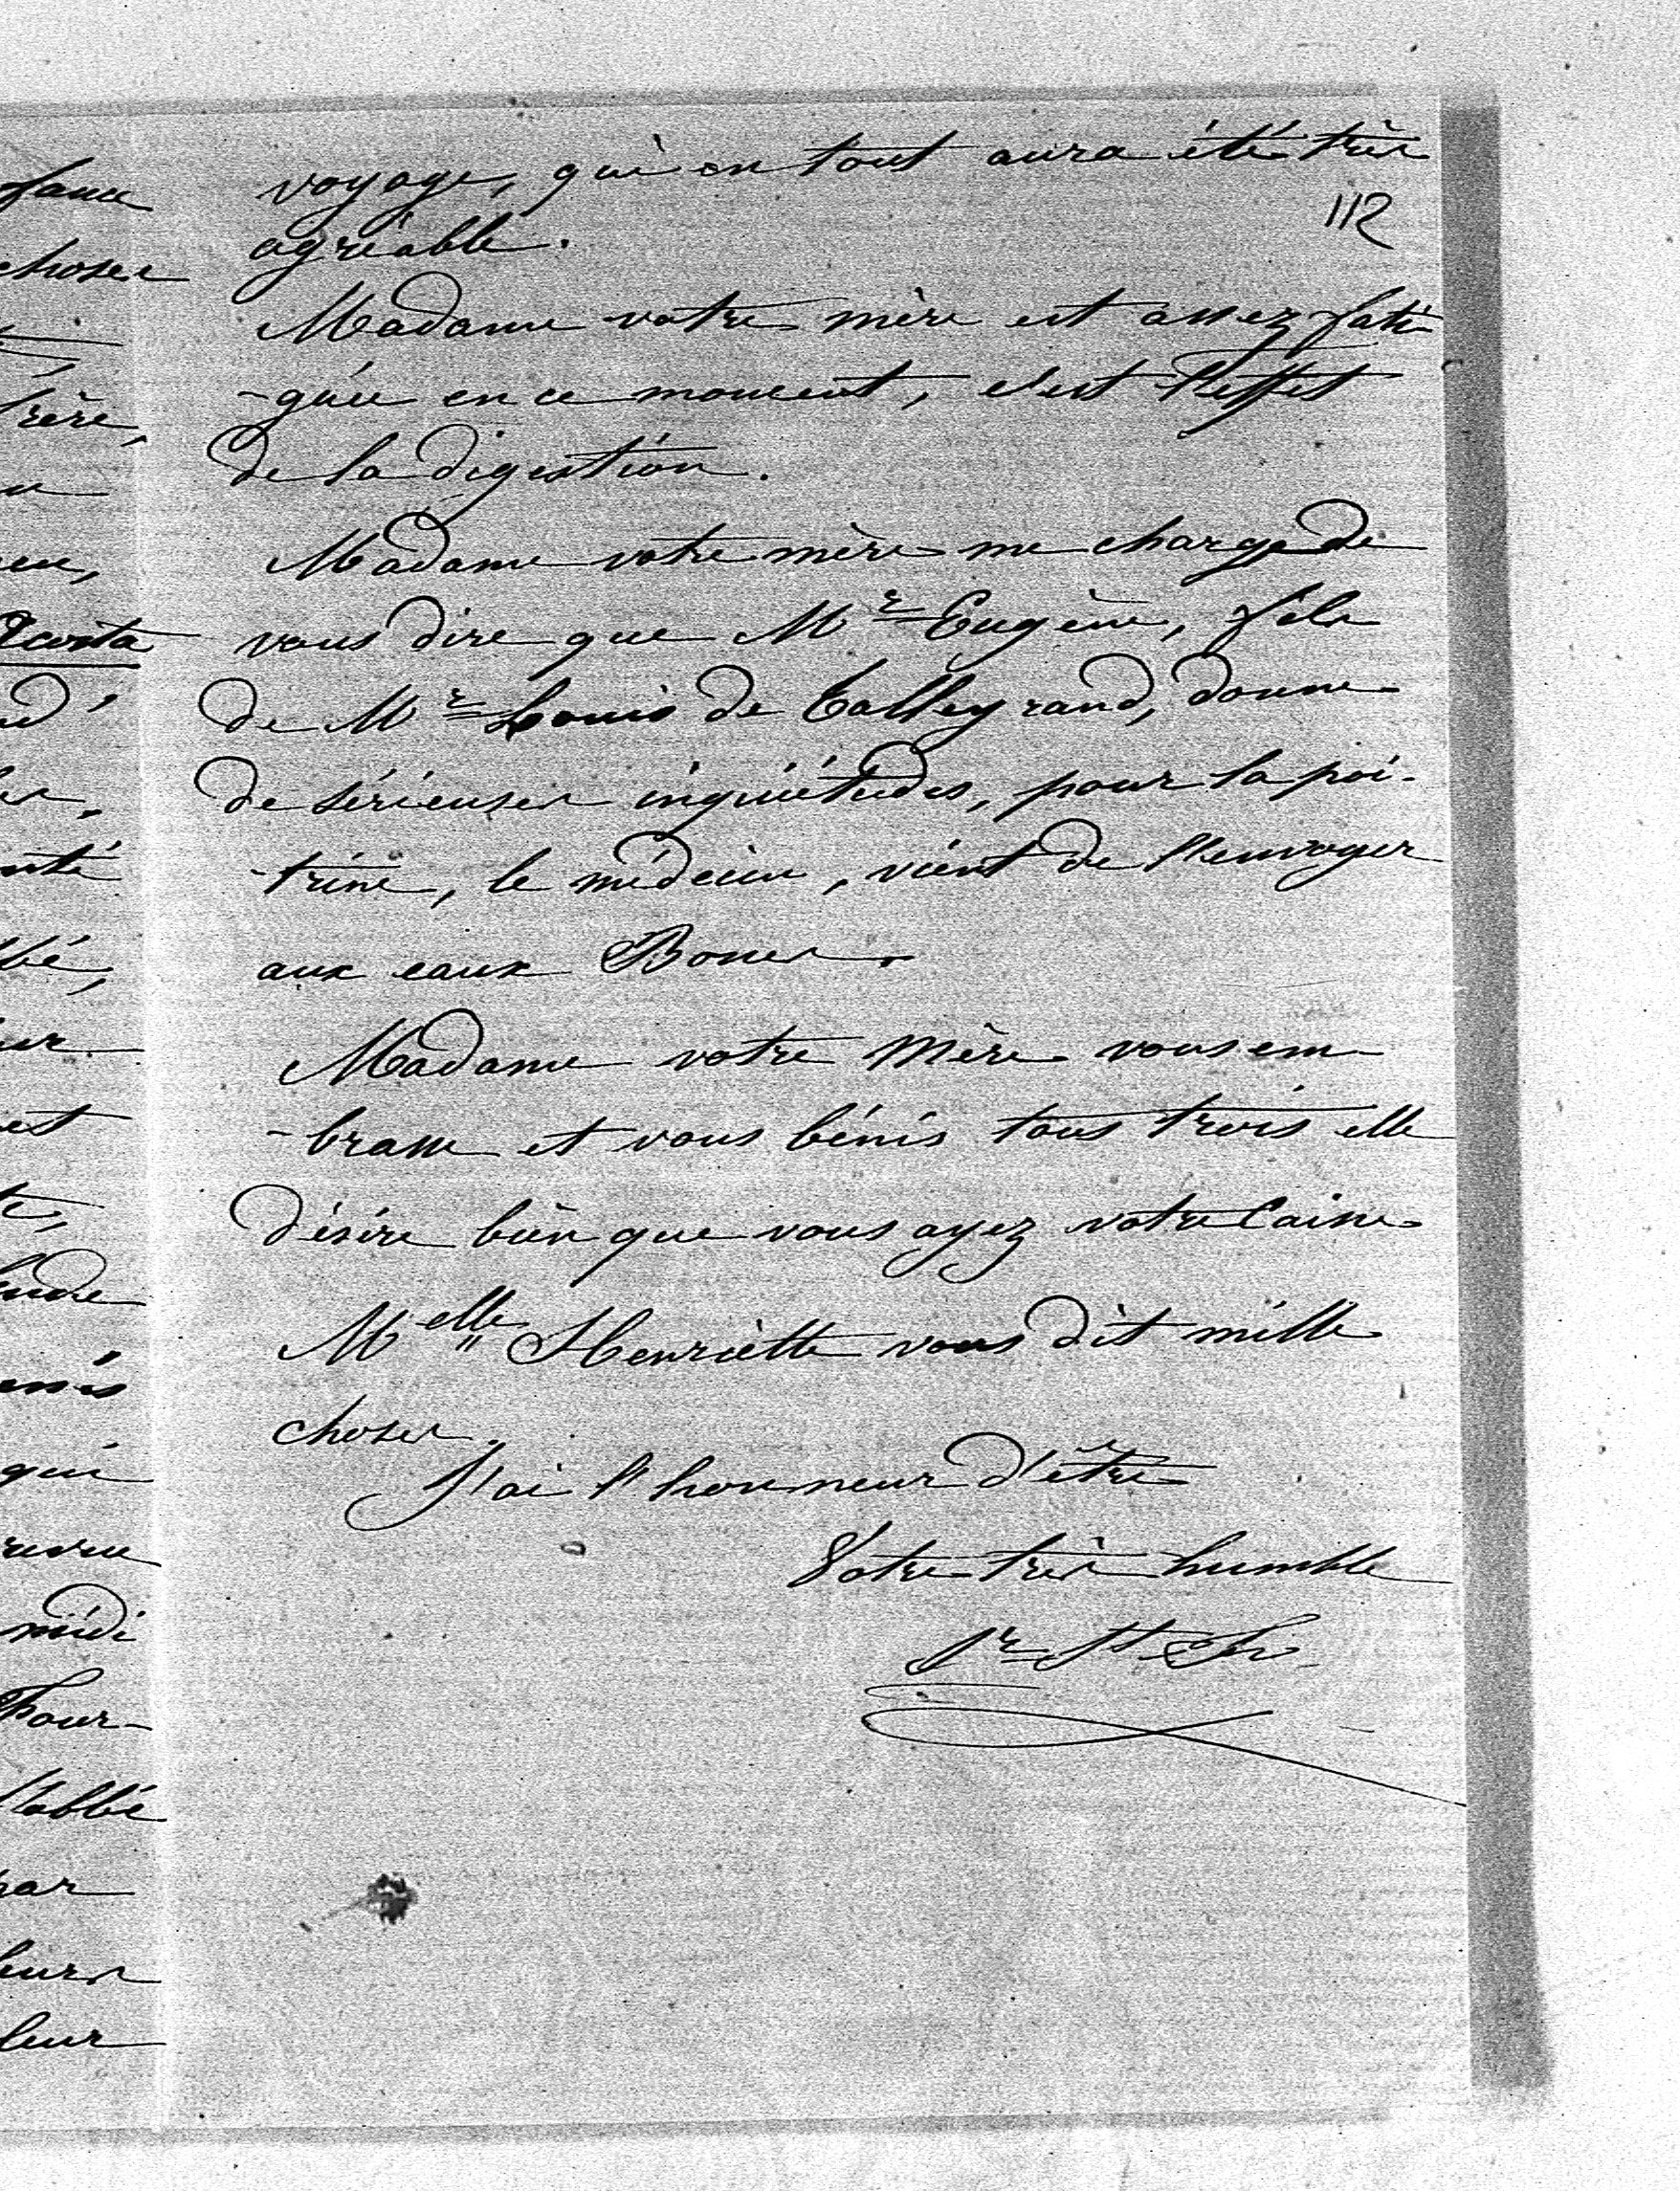 voyage, qui en tout aura été très
112
agréable.
Madame votre mère est assez fati-
-guée en ce moment, c'est l'effet
de la digestion.
Madame votre mère me charge de
vous dire que Mr Eugène, fils
de Mr Louis de Talleyrand, donne
de sérieuses inquiétudes, pour la poi-
-trine, le médecin, vient de l'envoyer
aux eaux Bones.
Madame votre Mère vous em-
-brasse et vous bénis tous trois elle
désire bien que vous ayez votre Caisse
Melle Henriette vous dit mille
choses.
J'ai l'honneur d'être
Votre très humble
Sr St
choses
rère,
Acosta
nté
bé,
et
qui
midi
Pour-
l'abbé
par
leurs
leur